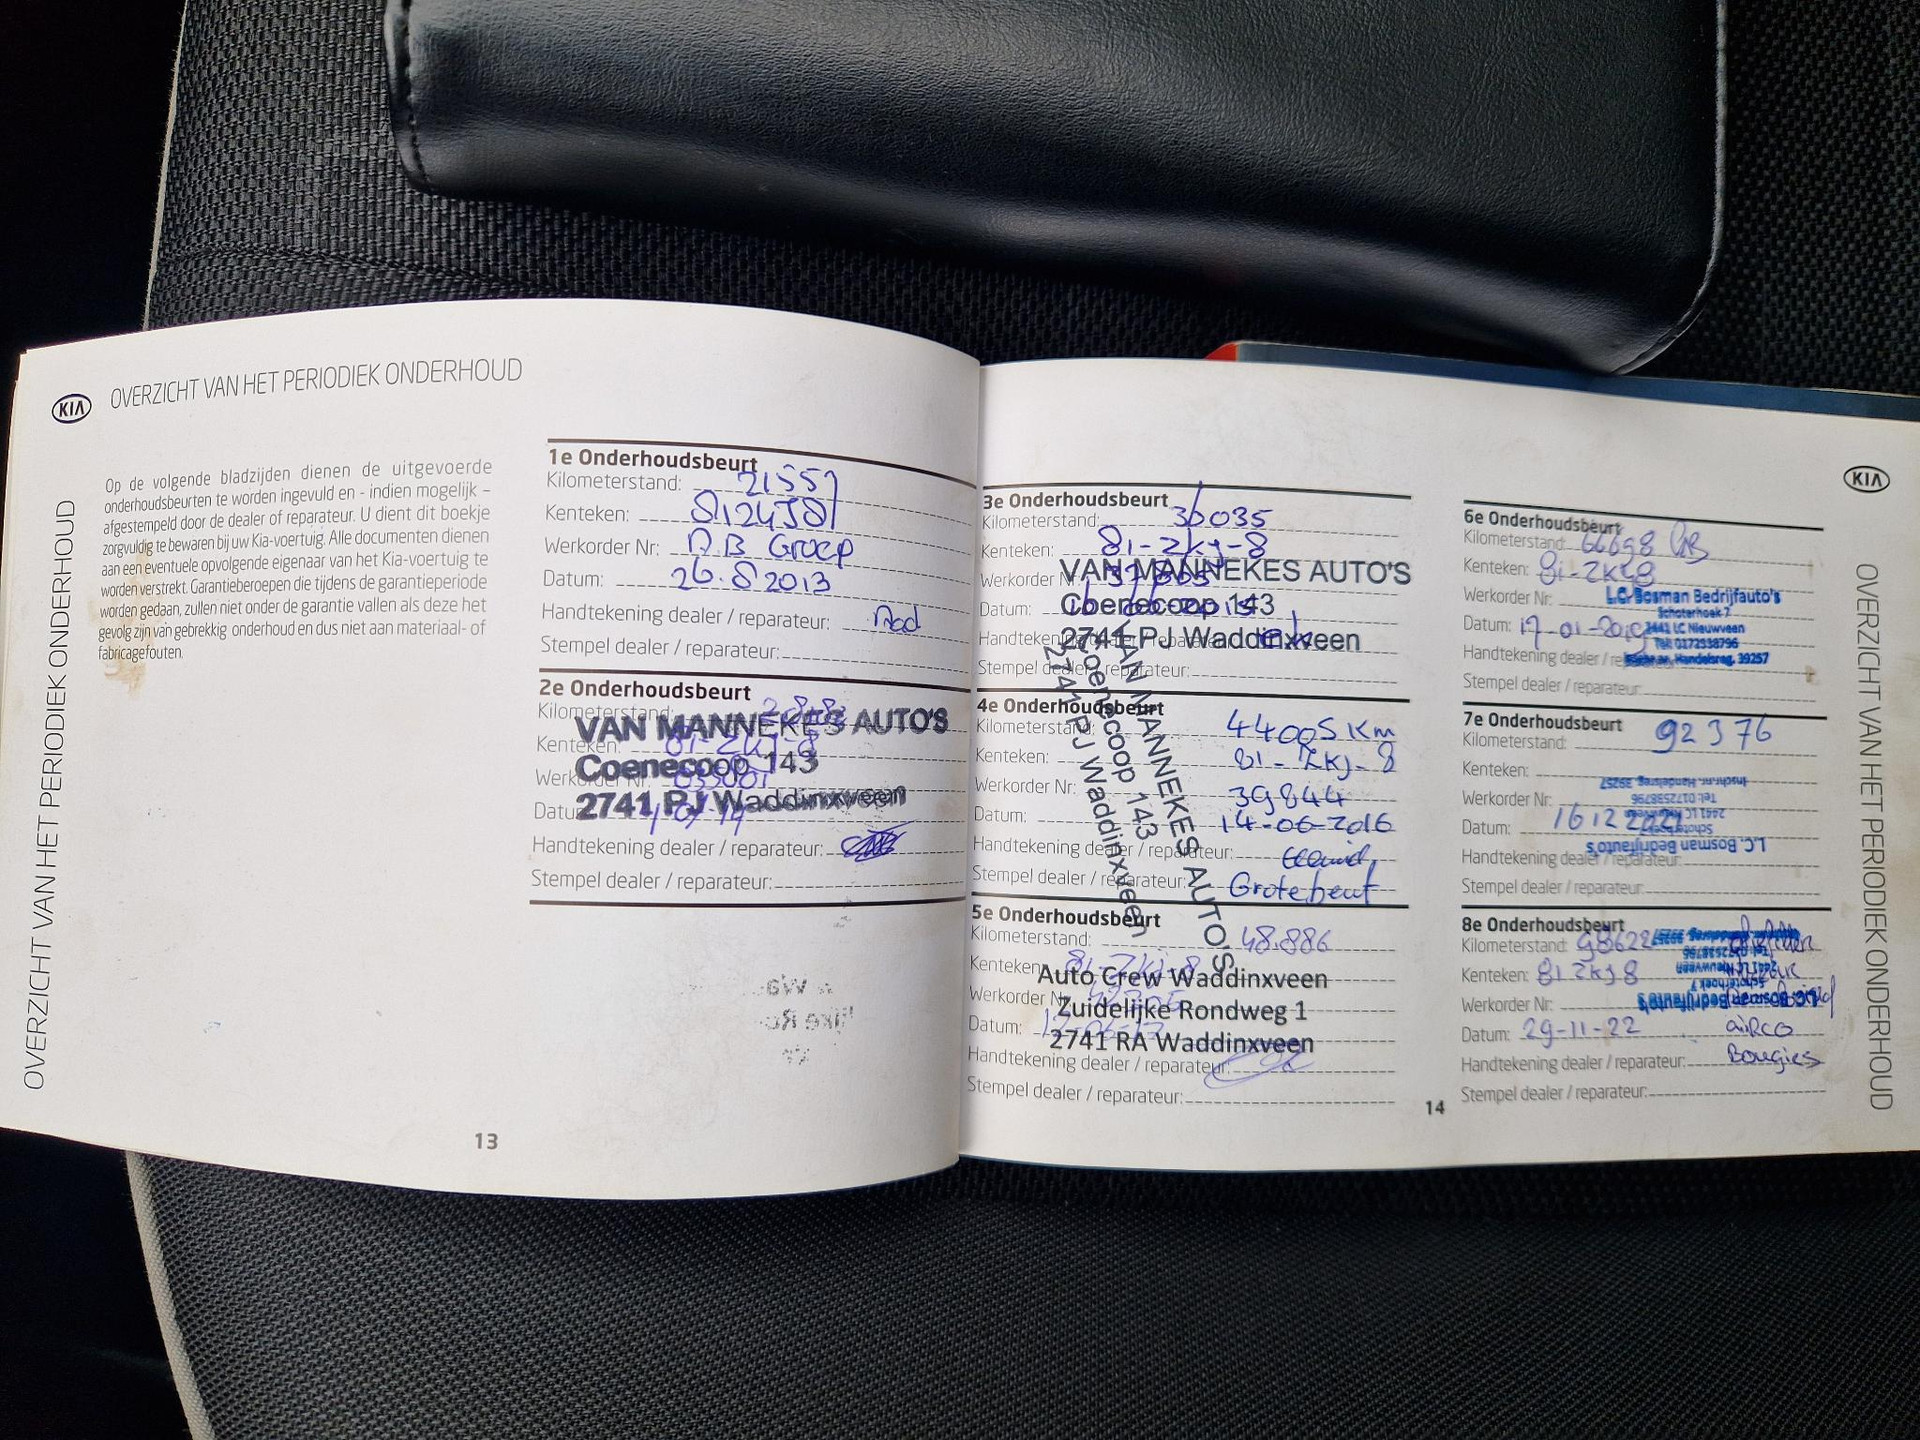 KIA
OVERZICHT VAN HET PERIODIEK ONDERHOUD
OVERZICHT VAN HET PERIODIEK ONDERHOUD
Op de volgende bladzijden dienen de uitgevoerde
onderhoudsbeurten te worden ingevuld en - indien mogelijk –
afgestempeld door de dealer of reparateur. U dient dit boekje
zorgvuldig te bewaren bij uw Kia-voertuig. Alle documenten dienen
aan een eventuele opvolgende eigenaar van het Kia-voertuig te
worden verstrekt. Garantieberoepen die tijdens de garantieperiode
worden gedaan, zullen niet onder de garantie vallen als deze het
gevolg zijn van gebrekkig onderhoud en dus niet aan materiaal- of
fabricagefouten.
1e Onderhoudsbeurt
Kilometerstand: 21557
Kenteken:
Werkorder Nr: A.B Groep
Datum: 26.8.2013
Handtekening dealer / reparateur:
Stempel dealer / reparateur:
2e Onderhoudsbeurt
Kilometerstand:
VAN MANNEKES AUTO'S
Kenteken: 81-ZKJ-8
Coenecoop 143
Werkorder Nr:
2741 PJ Waddinxveen
Datum:
Handtekening dealer / reparateur:
Stempel dealer / reparateur:
13
3e Onderhoudsbeurt
Kilometerstand: 36035
Kenteken: 81-ZKJ-8
VAN MANNEKES AUTO'S
Werkorder Nr:
Coenecoop 143
Datum:
2741 PJ Waddinxveen
Handtekening dealer / reparateur:
Stempel dealer / reparateur:
VAN MANNEKES AUTO'S
Coenecoop 143
2741 PJ Waddinxveen
4e Onderhoudsbeurt
Kilometerstand: 44005 Km
Kenteken: 81-ZKJ-8
Werkorder Nr: 39844
Datum: 14-06-2016
Handtekening dealer / reparateur:
Stempel dealer / reparateur: Grote beurt
5e Onderhoudsbeurt
Kilometerstand: 48.886
Kenteken: 81-ZKJ-8
Auto Crew Waddinxveen
Werkorder Nr:
Zuidelijke Rondweg 1
Datum:
2741 RA Waddinxveen
Handtekening dealer / reparateur:
Stempel dealer / reparateur:
14
KIA
6e Onderhoudsbeurt
Kilometerstand: 66698
Kenteken: 81-ZKJ8
Werkorder Nr:
L.C. Bosman Bedrijfauto's
Schoterhoek 7
Datum: 17-01-2019
2441 LC Nieuwveen
Tel: 0172538796
Handtekening dealer / reparateur:
Inschr.nr. Handelsreg. 39257
Stempel dealer / reparateur:
7e Onderhoudsbeurt
Kilometerstand: 92376
Kenteken:
Werkorder Nr:
Datum: 16 12 2021
Handtekening dealer / reparateur:
Stempel dealer / reparateur:
L.C. Bosman Bedrijfauto's
Schoterhoek 7
2441 LC Nieuwveen
Tel: 0172538796
Inschr.nr. Handelsreg. 39257
8e Onderhoudsbeurt
Kilometerstand: 98622
Kenteken: 81ZKJ8
Werkorder Nr:
Datum: 29-11-22 aiRco
Handtekening dealer / reparateur: Bougies
Stempel dealer / reparateur:
L.C. Bosman Bedrijfauto's
Schoterhoek 7
2441 LC Nieuwveen
Tel: 0172538796
OVERZICHT VAN HET PERIODIEK ONDERHOUD